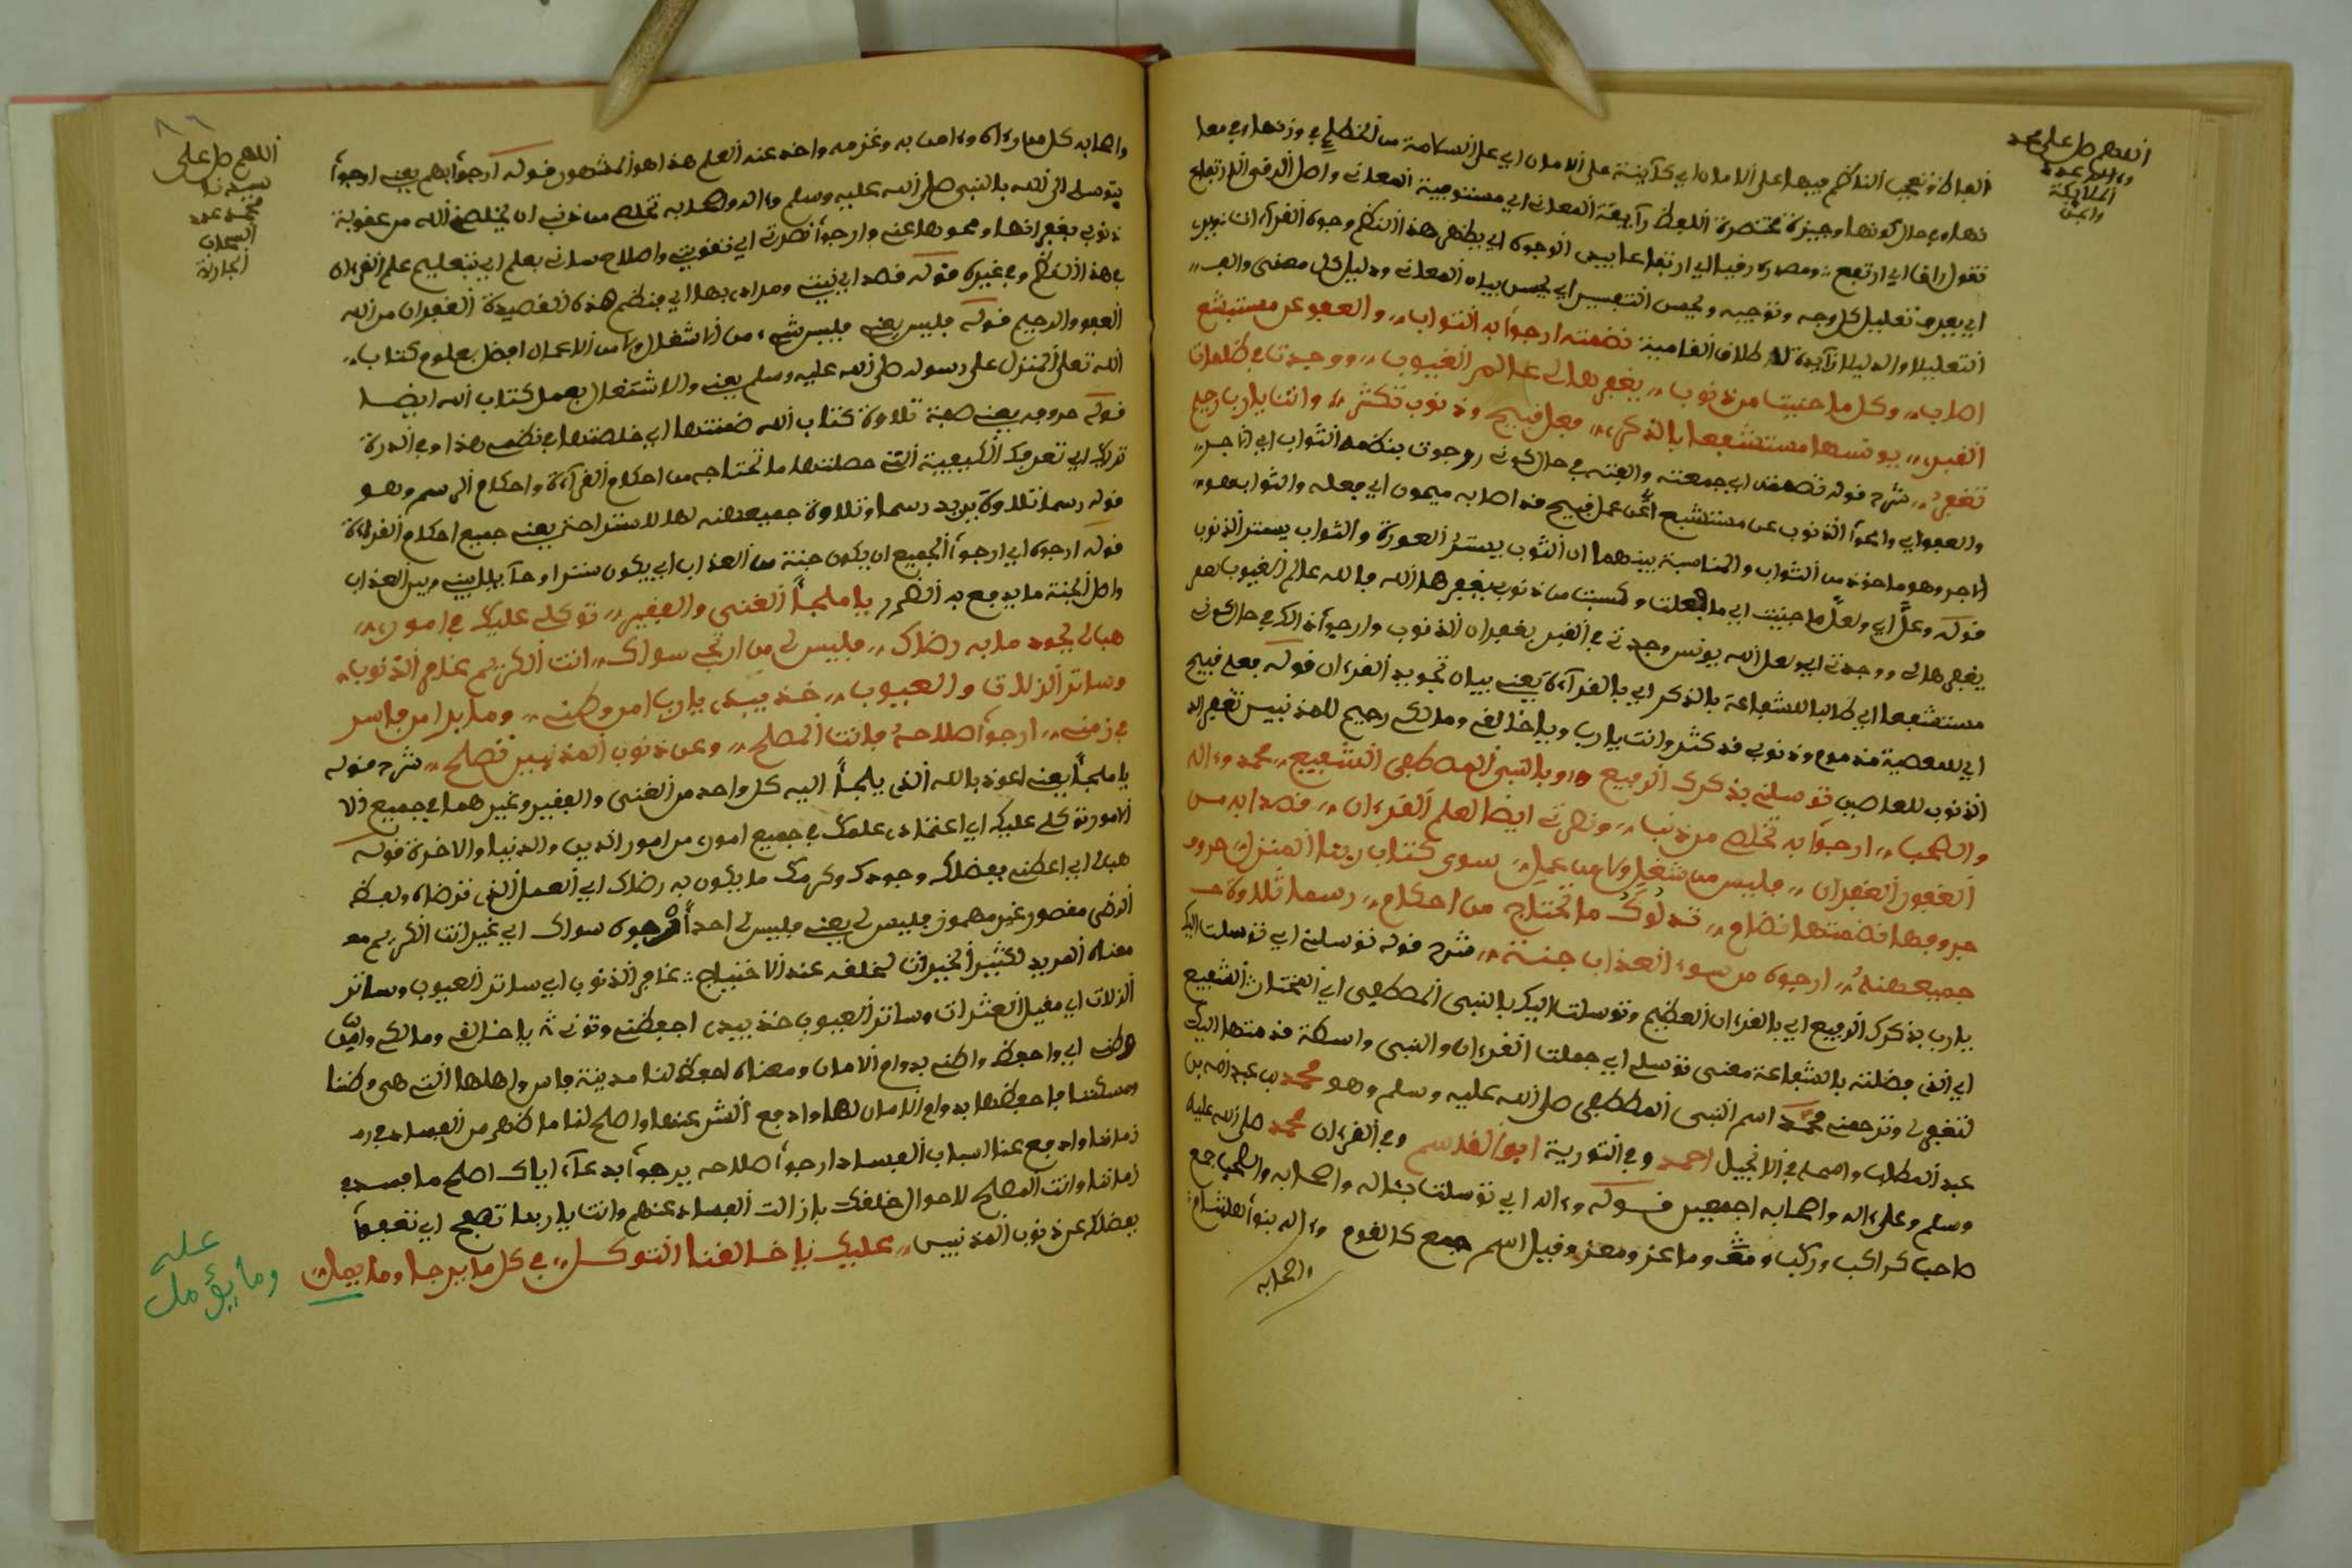 اللهم صل على محمد
وءاله عدد
الملائكة
والجن
نقول راقا اي ارتفع ومصدره رقيا اي ارتفاعا يبين الوجوه اي يظهر هذا النظم وجوه القرءان نوبر
اي يعرف تعليل كل وجه وتوجيه ويحسن التفسير اي يحسن بيان المعاني ودليل كل معنى
التعليل والدليل زايدة لاطلاق القافية نضمته ارجوا به الثواب والعفو عن مستبشع
اصاب وكل ما جنيت من ذنوب يغفرها لي عالم الغيوب ووحدتي في ظلمات
القبر يونسها مستشفعا بالذكر فعل قبيح وذنوب تكثر وانت يا رب رحيم
تغفر شرح قوله نضمته اي جمعته والفته في حال كوني رجوت بنظمه الثواب اي الاجر
والعفو اي وامحوا الذنوب عن مستشبع اي عن عمل قبيح قد اصابه ميمون اي فعله والثواب هو
الاجر وهو ماخوذ من الثواب والمناسبة بينهما ان الثوب يستر العورة والثواب يستر الذنوب
قوله وعل اي ولعل ما جنيت اي ما فعلت وكسبت من ذنوب يغفرها الله فالله عالم الغيوب
يغفرها لي ووحدتي اي ولعل الله يونس وحدتي في القبر بغفران الذنوب وارجوا ذالك في حال كوني
مستشفعا اي طالبا للشفاعة بالذكر اي بالقرآءة يعني بيان تجويد القرءان قوله فعل قبيح
اي للمعصية مذموم وذنوبي قد كثر وانت يا رب ويا خالقي ومالكي رحيم للمذنبين تغفر
الذنوب للعاصين توسلي بذكرك الرفيع وبالنبي المصطفى الشفيع محمد وءاله
والصحب ارجوا به تخلص من ذنب ونفرتي ايضا لعلم القرءان قصدا به من
الغفور الغفران فليس من شغل ولا من عمل سوى كتاب ربنا المنزل حروف
حروفها نضمتها نضام تدلوك ما تحتاج من احكام رسما تلاوة
جميعهنه ارجوه من سوء العذاب جنة شرح قوله توسلي اي توسلت اليك
يا رب بذكرك الرفيع اي بالقرءان العظيم وتوسلت اليك بالنبي المصطفى اي المختار الشفيع
اي الذي فضلته بالشفاعة معنى توسلي اي جعلت القرءان والنبي واسطة قدمتها اليك
لتغفر لي وترحمني محمد اسم النبي المصطفى صلى الله عليه وسلم وهو محمد بن عبد الله بن
عبد المطلب واسمه في الانجيل احمد وفي التورية ابو القاسم وفي القرءان محمد صلى الله عليه
وسلم وعلى ءاله واصحابه اجمعين قوله وءاله اي توسلت بئاله واصحابه والصحب جمع
صاحب كراكب وركب وما عز ومعز وقيل اسم جمع كالقوم وءاله بنوا هاشم
واصحابه
٨٦
اللهم صل على
سيدنا
محمد عدد
السحاب
الجارية
واصحابه كل من رءاه وءامن به وعزمه واخذ عنه العلم هذا هو المشهور قوله ارجوا بهم يعني ارجوا
يتوسلي الى الله بالنبي صلى الله عليه وسلم وءاله واصحابه تخلص من ذنب ان يخلصني الله من عقوبة
ذنوبي بغفرانها ومحوها عني وارجوا نصرتي اي تقويتي واصلاح ساني بعلم اي بتعليم علم القرءان
في هذا النظم وفي غيره قوله قصد اي نيتي ومرادي بها اي بنظم هذه القصيدة الغفران من الله
العفو والرحيم قوله فليس يعني فليس شيء من الاشغال ولا من الاعمال افضل بعلوم كتاب
الله تعلى المنزل على رسوله صلى الله عليه وسلم يعني والاشتغال بعمل كتاب الله ايضا
قوله حروفه يعني صفة تلاوة كتاب الله ضمنتها اي خلصتها في نظمي هذا وفي الدرة
تدريك اي تعرفك الكيفية التي حصلتها ما تحتاجه من احكام القرآءة واحكام الرسم وهو
قوله رسما تلاوة يريد رسما وتلاوة جميعهنه لها للاستراحة يعني جميع احكام القراءة
قوله ارجوه اي ارجوا الجميع ان يكون جنة من العذاب اي يكون سترا وحآيلا بيني وبين العذاب
واصل الجنة ما يدفع به الضرر يا ملجأ الغني والفقير توكلي عليك في امور
هبالي بجود ما به رضاك فليس لي من ارتجي سواك انت الكريم غافر الذنوب
وساتر الزلات والعيوب خذ بيدي يا رب امر وطني وما يرا من فاسد
في زمني ارجوا صلاحه فانت المصلح وعن ذنوب المذنبين تصلح شرح قوله
يا ملجأ يعني اعوذ بالله الذي يلجأ اليه كل واحد من الغني والفقير وغيرهما في جميع الا
الامور توكلي عليك اي اعتمادي عليك في جميع امور من امور الدين والدنيا والاخرة قوله
هبالي اي اعطني بفضلك وجودك وكرمك ما يكون به رضاك اي العمل الذي ترضاه ولفظ
الرضى مقصور غير مهموز فليس لي يعني فليس لي احدا نرجوه سواك اي غيرك انت الكريم
معناه المريد لكثير الخيرات لخلقه عند الاحتياج غافر الذنوب اي ساتر العيوب وساتر
الزلات اي مقيل العثرات وساتر العيوب خذ بيدي احفظني وقوني يا خالقي ومالكي وامن
وطني اي واحفظ واطني بدوام الامان ومعناه احفظ لنا مدينة فاس واهلها التي هي وطننا
ومسكننا فاحفظها بدوام الامان لها وادفع الشر عنها واصلح لنا ما ظهر من الفساد في
زماننا وادفع عنا اسباب الفساد ارجوا صلاحه يرجوا بدعآء اياك اصلح ما فسد في
زماننا وانت المصلح لاحوال خلقك بازالت الفساد عنهم وانت يا ربنا تصفح اي تعفوا
بفضلك عن ذنوب المذنبين عليك يا خالقنا التوكل في كل ما يرجا وما يمل
عله
وما يؤمل